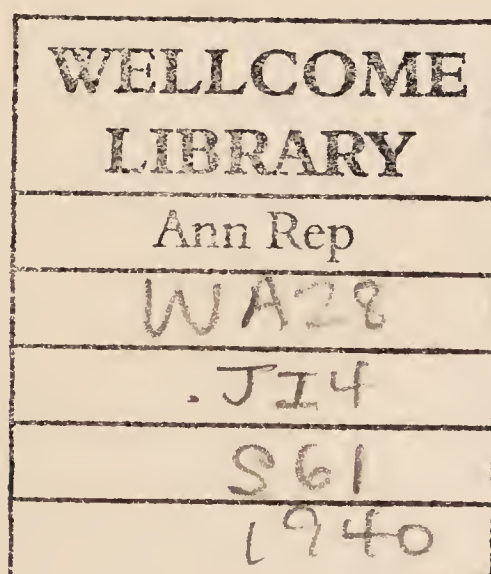 WELLCOME
LIBRARY
Ann Rep
WA28
.JI4
S61
1940